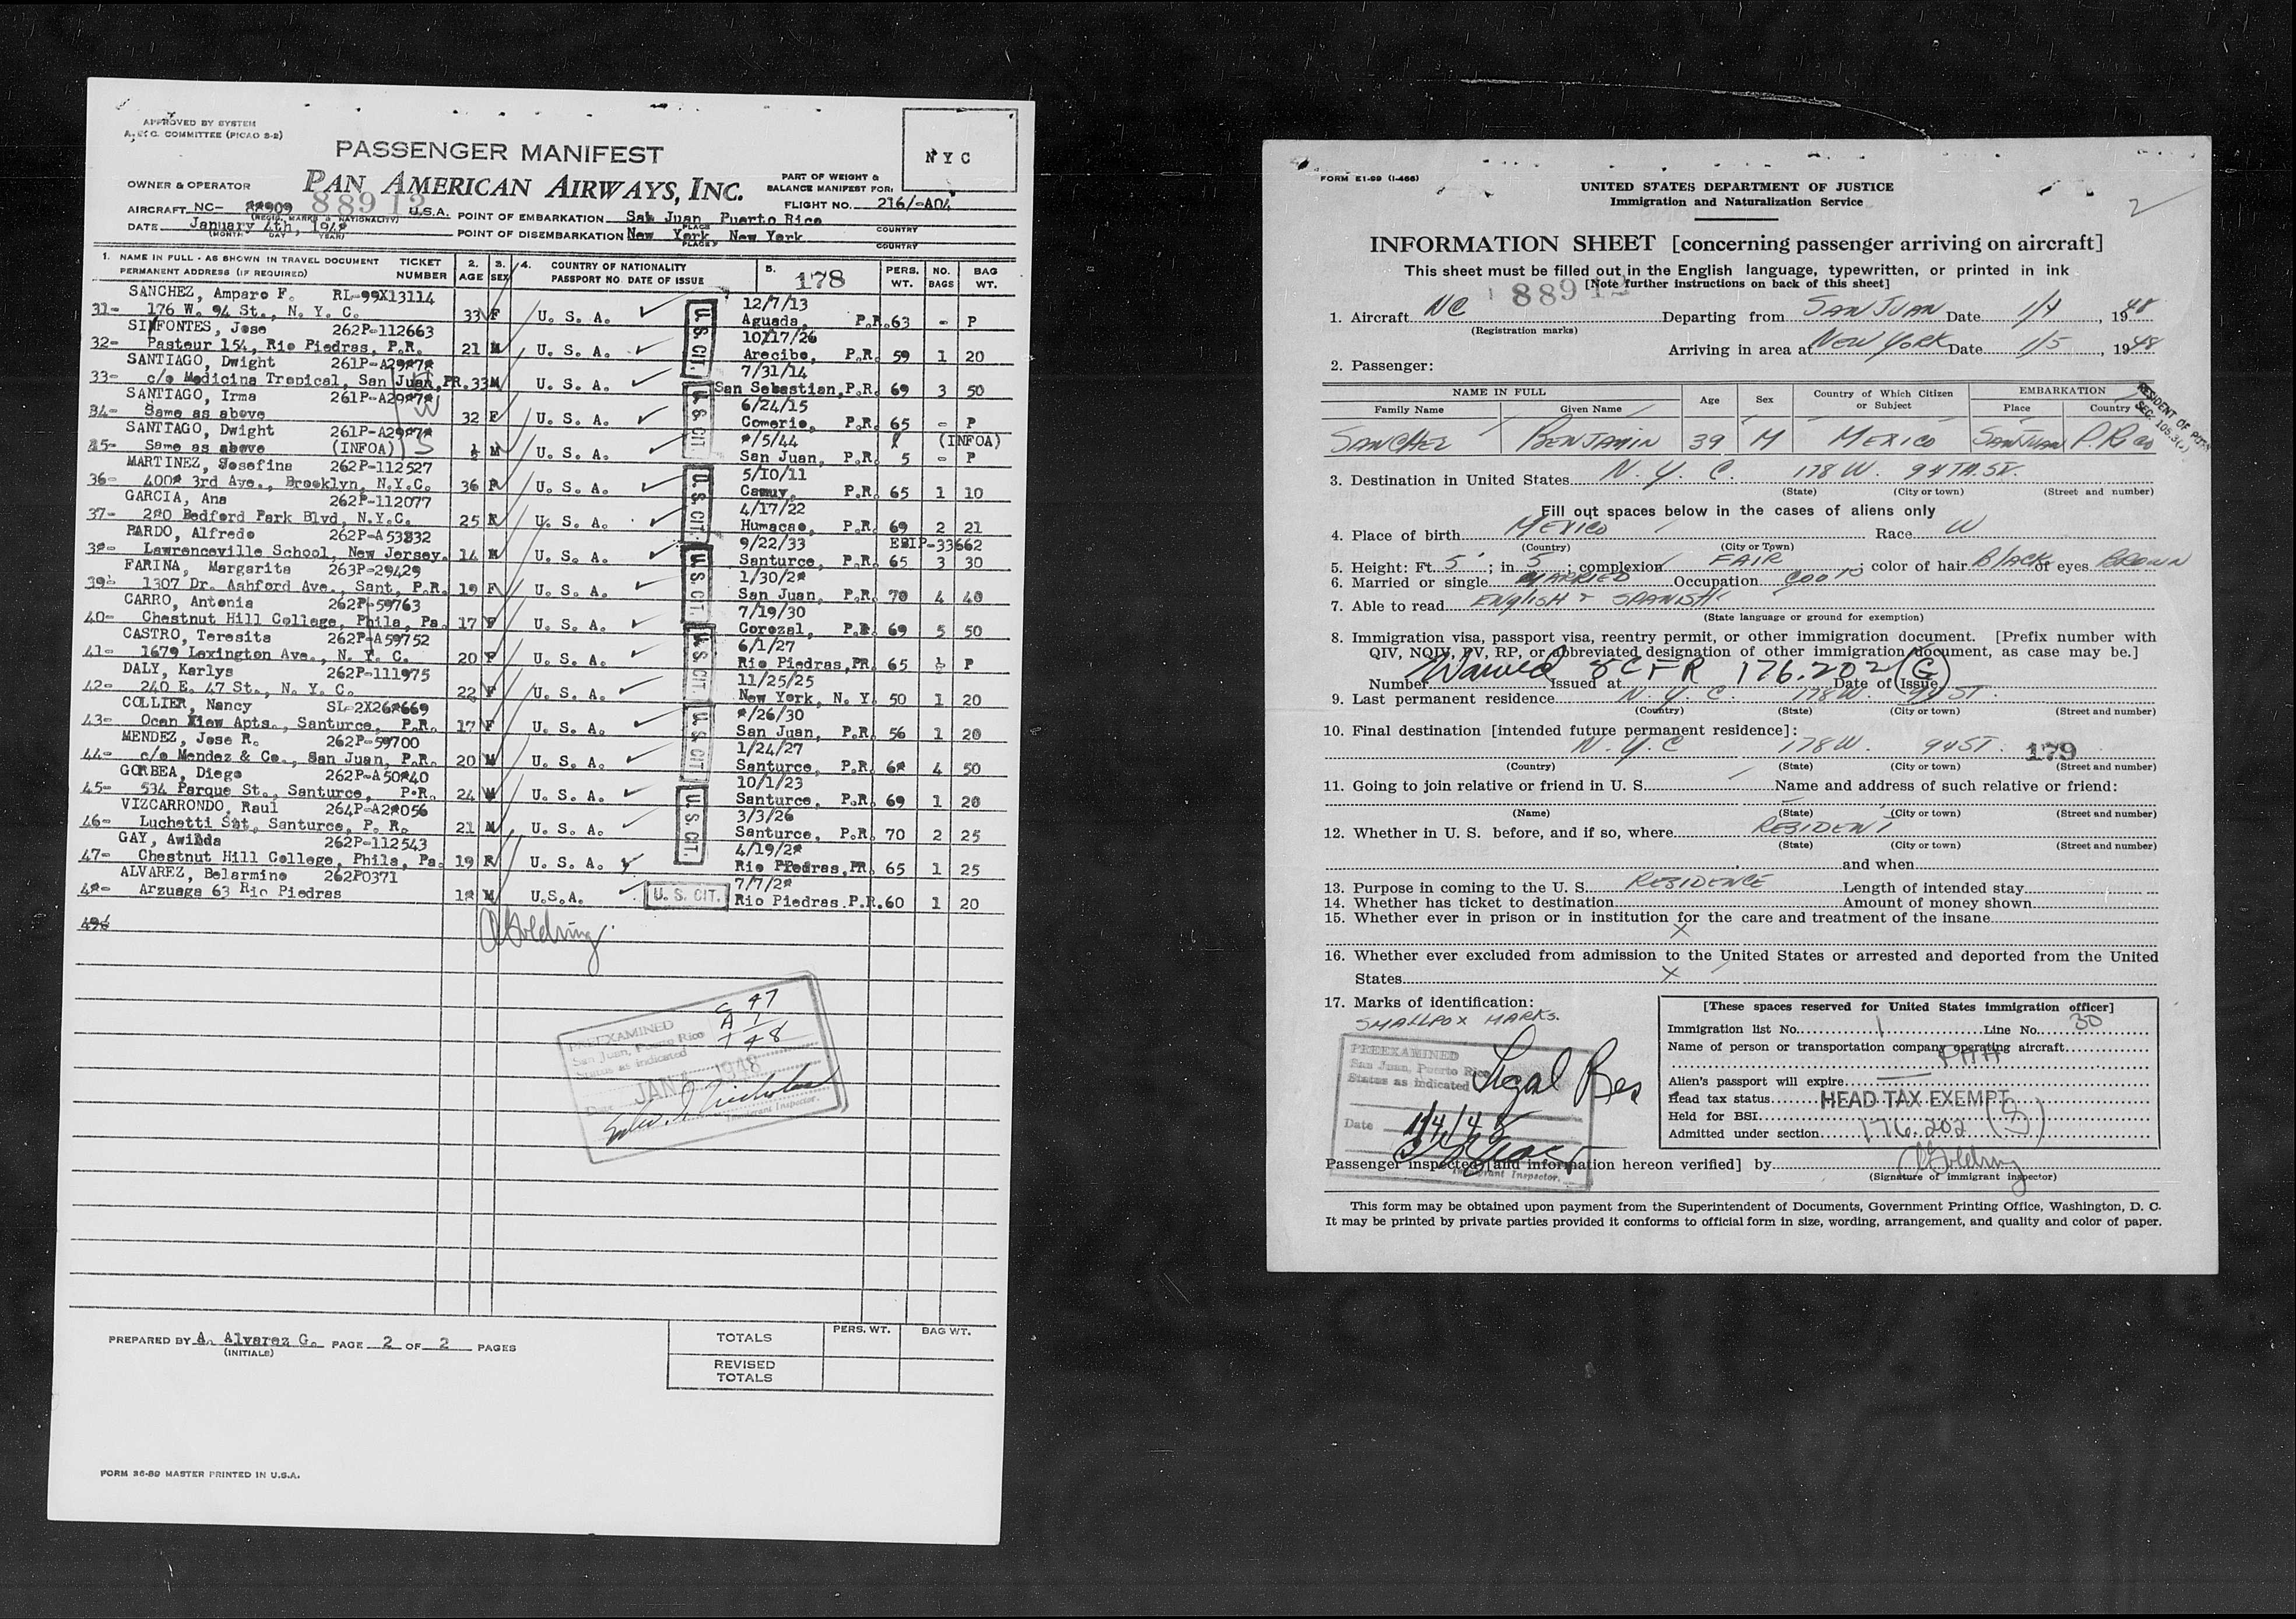 APPROVED BY SYSTEM
A. & C. COMMITTEE (PICAO S-2)
PASSENGER MANIFEST
PAN AMERICAN AIRWAYS, INC.
NYC
OWNER & OPERATOR
PART OF WEIGHT &
BALANCE MANIFEST FOR:
FLIGHT NO. 216/-A04
AIRCRAFT NC- **909 88912 U.S.A.
(REGIS. MARKS & NATIONALITY)
POINT OF EMBARKATION San Juan Puerto Rico
PLACE COUNTRY
DATE January 4th, 194*
(MONTH DAY YEAR)
POINT OF DISEMBARKATION New York New York
PLACE COUNTRY
1. NAME IN FULL - AS SHOWN IN TRAVEL DOCUMENT TICKET 2. 3. 4. COUNTRY OF NATIONALITY 5. 178 PERS. NO. BAG
PERMANENT ADDRESS (IF REQUIRED) NUMBER AGE SEX PASSPORT NO. DATE OF ISSUE WT. BAGS WT.
SANCHEZ, Amparo F. RL-99X13114 12/7/13
31- 176 W. 94 St., N. Y. C. 33 F U. S. A. Aguada, P.R. 63 - P
SINFONTES, Jose 262P-112663 10/17/26
32- Pasteur 154, Rio Piedras, P.R. 21 M U. S. A. Arecibo, P.R. 59 1 20
SANTIAGO, Dwight 261P-A29*7* 7/31/14
33- c/o Medicina Tropical, San Juan, PR. 33 M U. S. A. San Sebastian, P.R. 69 3 50
SANTIAGO, Irma 261P-A29*7* W 6/24/15
34- Same as above 32 F U. S. A. Comerio, P.R. 65 - P
SANTIAGO, Dwight 261P-A29*7* */5/44 (INFOA)
35- Same as above (INFOA) S M U. S. A. San Juan, P.R. 5 - P
MARTINEZ, Josefina 262P-112527 5/10/11
36- 400* 3rd Ave., Brooklyn, N.Y.C. 36 F U. S. A. Camuy, P.R. 65 1 10
GARCIA, Ana 262P-112077 4/17/22
37- 2*0 Bedford Park Blvd, N.Y.C. 25 F U. S. A. Humacao, P.R. 69 2 21
PARDO, Alfredo 262P-A53*32 9/22/33 EBIP-33662
3*- Lawrenceville School, New Jersey. 14 M U. S. A. Santurce, P.R. 65 3 30
FARINA, Margarita 263P-29429 1/30/2*
39- 1307 Dr. Ashford Ave., Sant, P.R. 19 F U. S. A. San Juan, P.R. 70 4 40
CARRO, Antonia 262P-59763 7/19/30
40- Chestnut Hill College, Phila, Pa. 17 F U. S. A. Corozal, P.R. 69 5 50
CASTRO, Teresita 262P-A59752 6/1/27
41- 1679 Lexington Ave., N. Y. C. 20 F U. S. A. Rio Piedras, PR. 65 P
DALY, Karlys 262P-111975 11/25/25
42- 240 E. 47 St., N. Y. C. 22 F U. S. A. New York, N. Y. 50 1 20
COLLIER, Nancy SL-2X26*669 */26/30
43- Ocen View Apts., Santurce, P.R. 17 F U. S. A. San Juan, P.R. 56 1 20
MENDEZ, Jose R. 262P-59700 1/24/27
44- c/o Mendez & Co., San Juan, P.R. 20 M U. S. A. Santurce, P.R. 6* 4 50
GORBEA, Diego 262P-A50*40 10/1/23
45- 534 Parque St., Santurce, P.R. 24 M U. S. A. Santurce, P.R. 69 1 20
VIZCARRONDO, Raul 264P-A2*056 3/3/26
46- Luchetti Sat, Santurce, P. R. 21 M U. S. A. Santurce, P.R. 70 2 25
GAY, Awilda 262P-112543 4/19/2*
47- Chestnut Hill College, Phila, Pa. 19 F U. S. A. Rio Piedras, PR. 65 1 25
ALVAREZ, Belarmino 262P0371 7/7/2*
4*- Arzuaga 63 Rio Piedras 1* M U.S.A. U. S. CIT. Rio Piedras P.R. 60 1 20
U. S. CIT.
U. S. CIT.
U. S. CIT.
U. S. CIT.
U. S. CIT.
U. S. CIT.
U. S. CIT.
49-
A Goldring
C 47
A 1
T 48
PREEXAMINED
San Juan, Puerto Rico
Status as indicated
Date JAN 4 1948
Immigrant Inspector.
PREPARED BY A. Alvarez G. PAGE 2 OF 2 PAGES
(INITIALS)
TOTALS PERS. WT. BAG WT.
REVISED
TOTALS
FORM 36-89 MASTER PRINTED IN U.S.A.
FORM E1-99 (I-466)
2
UNITED STATES DEPARTMENT OF JUSTICE
Immigration and Naturalization Service
INFORMATION SHEET [concerning passenger arriving on aircraft]
This sheet must be filled out in the English language, typewritten, or printed in ink
[Note further instructions on back of this sheet]
88912
1. Aircraft NC Departing from SAN JUAN Date 1/4, 1948
(Registration marks)
Arriving in area at NEW YORK Date 1/5, 1948
2. Passenger:
NAME IN FULL Age Sex Country of Which Citizen or Subject EMBARKATION
Family Name Given Name Place Country
SANCHEZ BENJAMIN 39 M MEXICO SAN JUAN P. RICO
3. Destination in United States N. Y. C. 178 W. 94TH. ST.
(State) (City or town) (Street and number)
Fill out spaces below in the cases of aliens only
4. Place of birth MEXICO Race W
(Country) (City or Town)
5. Height: Ft. 5; in. 5; complexion FAIR; color of hair BLACK of eyes BROWN
6. Married or single MARRIED Occupation
7. Able to read ENGLISH & SPANISH
(State language or ground for exemption)
8. Immigration visa, passport visa, reentry permit, or other immigration document. [Prefix number with
QIV, NQIV, PV, RP, or abbreviated designation of other immigration document, as case may be.]
Waived 8 CFR 176.202 (G)
Number Issued at Date of Issue
9. Last permanent residence N. Y. C. 178 W. 94 ST.
(Country) (State) (City or town) (Street and number)
10. Final destination [intended future permanent residence]:
N. Y. C 178 W. 94 ST. 179
(Country) (State) (City or town) (Street and number)
11. Going to join relative or friend in U. S. Name and address of such relative or friend:
(Name) (State) (City or town) (Street and number)
12. Whether in U. S. before, and if so, where RESIDENT
(State) (City or town) (Street and number)
and when
13. Purpose in coming to the U. S. RESIDENCE Length of intended stay
14. Whether has ticket to destination Amount of money shown
15. Whether ever in prison or in institution for the care and treatment of the insane
X
16. Whether ever excluded from admission to the United States or arrested and deported from the United
States X
17. Marks of identification:
SMALLPOX MARKS.
PREEXAMINED
San Juan, Puerto Rico
Status as indicated Legal Res
Date 1/4/48
Immigrant Inspector.
[These spaces reserved for United States immigration officer]
Immigration list No. 1 Line No. 30
Name of person or transportation company operating aircraft
PAA
Alien's passport will expire
Head tax status HEAD TAX EXEMPT
Held for BSI
Admitted under section 176.202 (G)
Passenger inspected [and information hereon verified] by A Goldring
(Signature of immigrant inspector)
This form may be obtained upon payment from the Superintendent of Documents, Government Printing Office, Washington, D. C.
It may be printed by private parties provided it conforms to official form in size, wording, arrangement, and quality and color of paper.